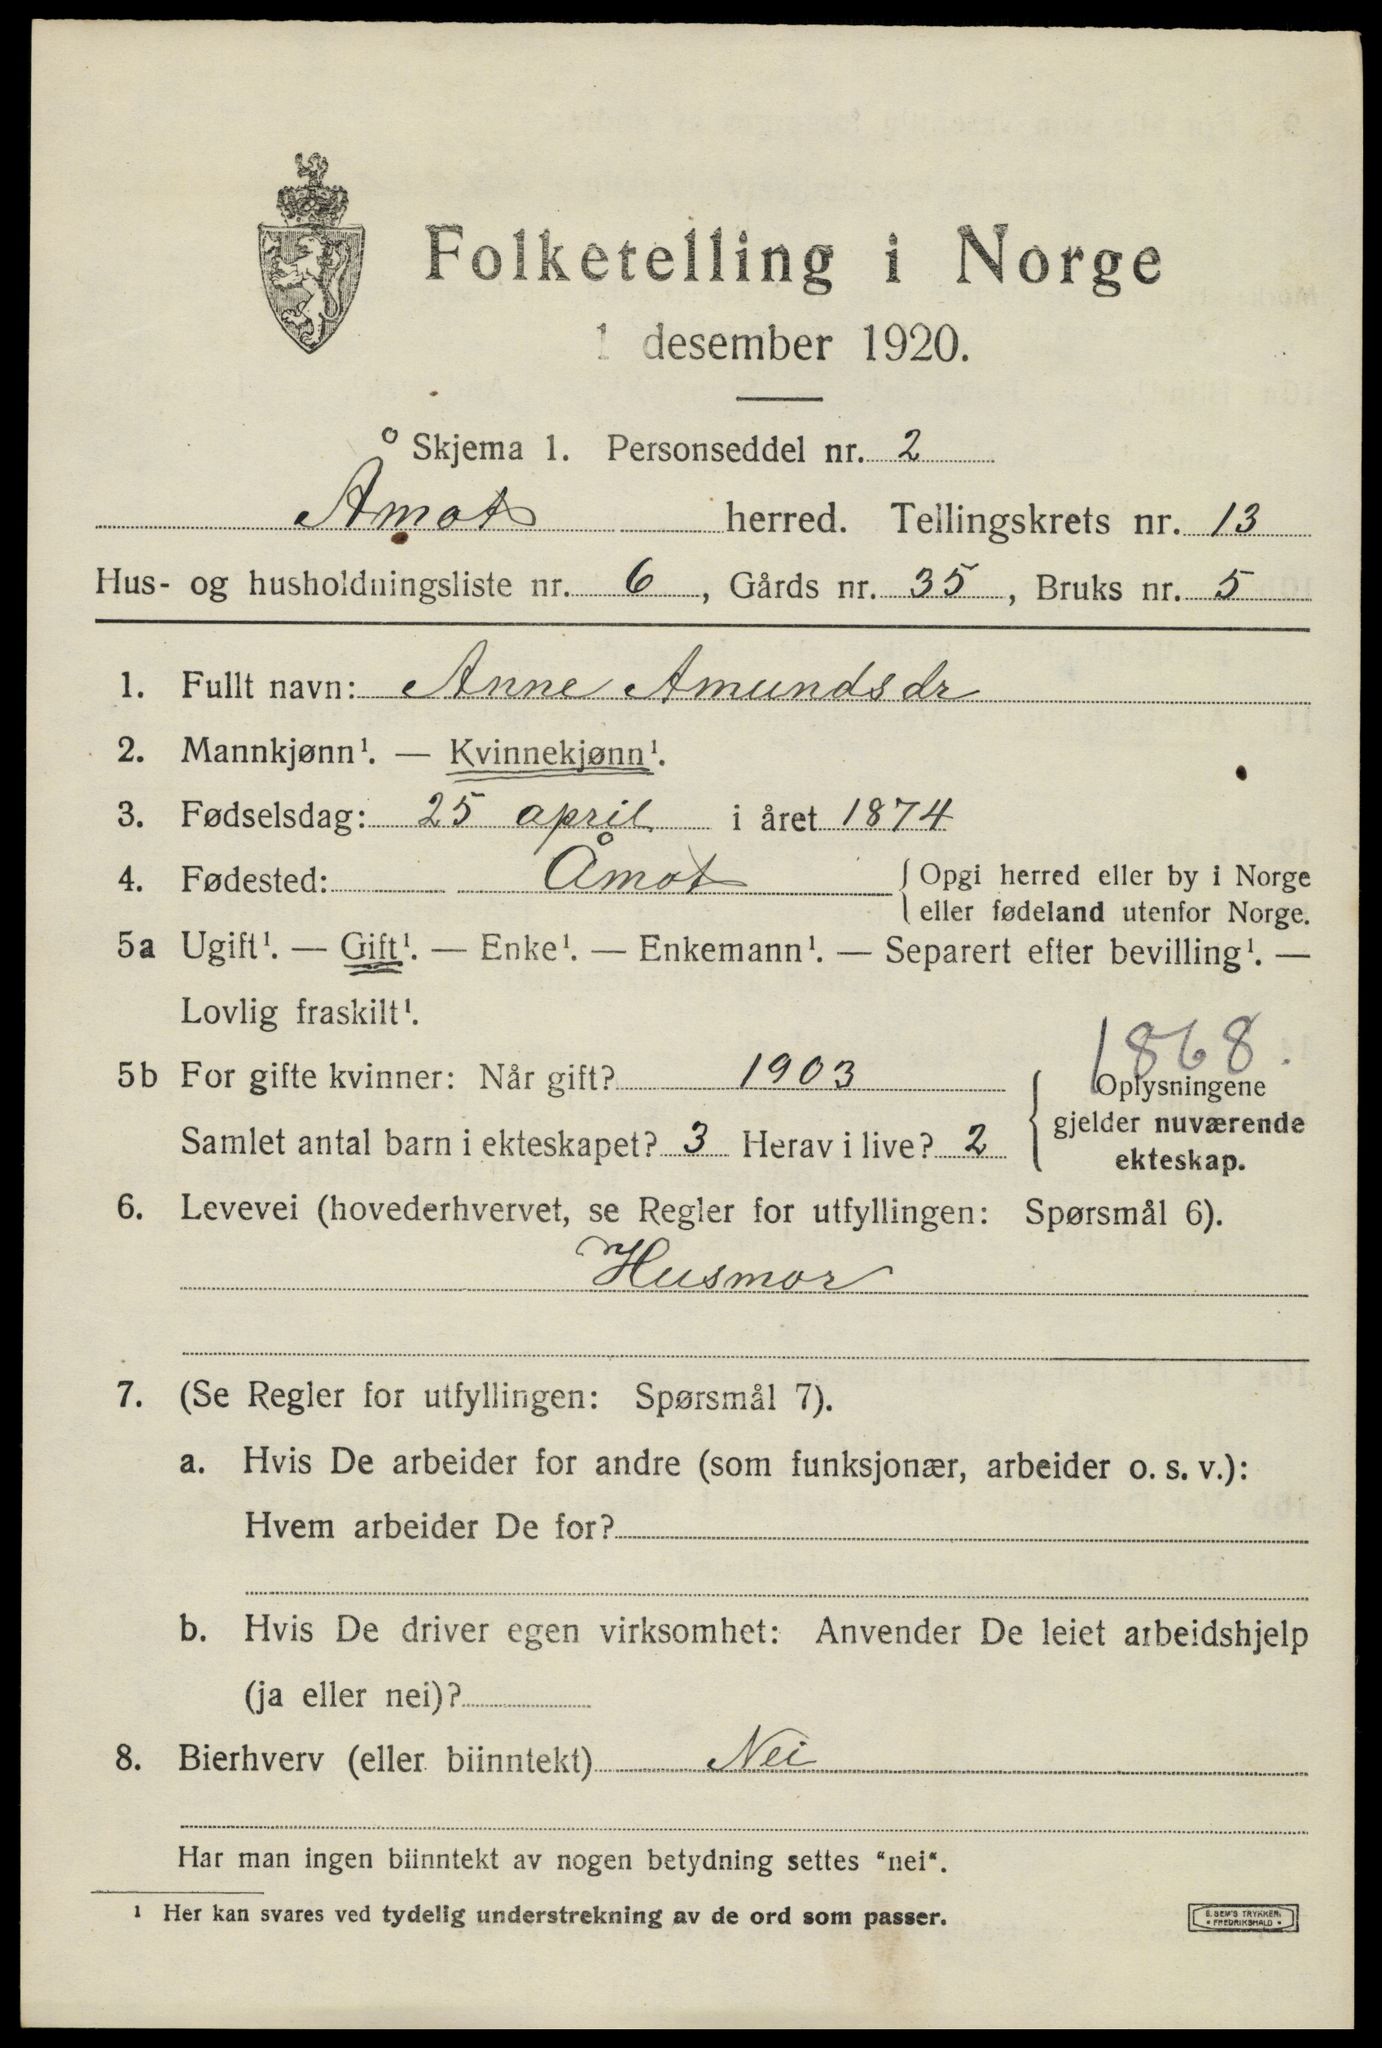 Folketelling i Norge
1 desember 1920.
Skjema 1. Personseddel nr. 2
Åmot herred. Tellingskrets nr. 13
Hus- og husholdningsliste nr. 6, Gårds nr. 35, Bruks nr. 5
1. Fullt navn: Anne Amundsdr
2. Mannkjønn¹. — Kvinnekjønn¹.
3. Fødselsdag: 25 april i året 1874
4. Fødested: Åmot { Opgi herred eller by i Norge
eller fødeland utenfor Norge.
5a Ugift¹. — Gift¹. — Enke¹. — Enkemann¹. — Separert efter bevilling¹. —
Lovlig fraskilt¹.
1868.
5b For gifte kvinner: Når gift? 1903 { Oplysningene
gjelder nuværende
Samlet antal barn i ekteskapet? 3 Herav i live? 2
ekteskap.
6. Levevei (hovederhvervet, se Regler for utfyllingen: Spørsmål 6).
Husmor
7. (Se Regler for utfyllingen: Spørsmål 7).
a. Hvis De arbeider for andre (som funksjonær, arbeider o. s. v.):
Hvem arbeider De for?
b. Hvis De driver egen virksomhet: Anvender De leiet arbeidshjelp
(ja eller nei)?
8. Bierhverv (eller biinntekt) Nei
Har man ingen biinntekt av nogen betydning settes "nei".
¹ Her kan svares ved tydelig understrekning av de ord som passer.
E. SEM'S TRYKKERI
• FREDRIKSHALD •